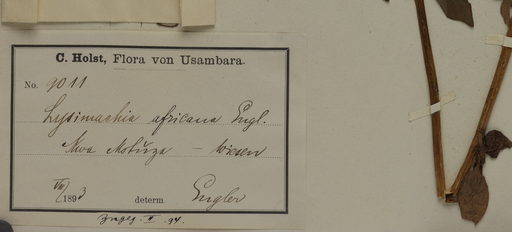 C. Holst, Flora von Usambara.
No. 9011
Lysimachia africana Engl.
Kwa Mstuza — Wiesen
VIII/1893 determ. Engler
II. 94.